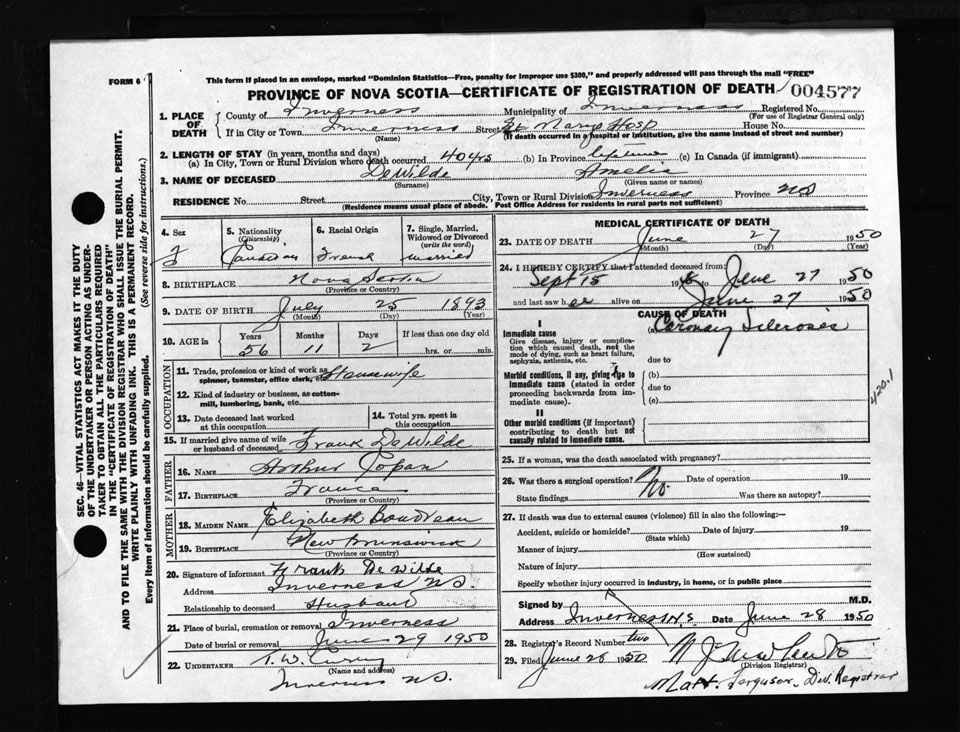 This form if placed in an envelope, marked "Dominion Statistics—Free, penalty for improper use $300," and properly addressed will pass through the mail "FREE"
FORM 6
PROVINCE OF NOVA SCOTIA—CERTIFICATE OF REGISTRATION OF DEATH
004577
1. PLACE OF DEATH
County of Inverness Municipality of Inverness Registered No.
(For use of Registrar General only)
If in City or Town Inverness Street St Marys Hosp House No.
(Name) (If death occurred in a hospital or institution, give the name instead of street and number)
2. LENGTH OF STAY (in years, months and days)
(a) In City, Town or Rural Division where death occurred 40 yrs (b) In Province lifetime (c) In Canada (if immigrant)
3. NAME OF DECEASED DeWilde Amelia
(Surname) (Given name or names)
RESIDENCE No. Street City, Town or Rural Division Inverness Province NS
(Residence means usual place of abode. Post Office Address for residents in rural parts not sufficient)
4. Sex
F
5. Nationality (Citizenship)
Canadian
6. Racial Origin
French
7. Single, Married, Widowed or Divorced (write the word)
married
8. BIRTHPLACE Nova Scotia
(Province or Country)
9. DATE OF BIRTH July 25 1893
(Month) (Day) (Year)
10. AGE in Years Months Days If less than one day old
56 11 2 hrs. or min.
OCCUPATION
11. Trade, profession or kind of work as spinner, teamster, office clerk, etc. Housewife
12. Kind of industry or business, as cotton-mill, lumbering, bank, etc.
13. Date deceased last worked at this occupation
14. Total yrs. spent in this occupation
15. If married give name of wife or husband of deceased Frank DeWilde
FATHER
16. NAME Arthur Copan
17. BIRTHPLACE France
(Province or Country)
MOTHER
18. MAIDEN NAME Elizabeth Boudreau
19. BIRTHPLACE New Brunswick
(Province or Country)
20. Signature of informant Frank De Wilde
Address Inverness NS.
Relationship to deceased Husband
21. Place of burial, cremation or removal Inverness
Date of burial or removal June 29 1950
22. UNDERTAKER T. W.
(Name and address)
Inverness NS.
MEDICAL CERTIFICATE OF DEATH
23. DATE OF DEATH June 27 1950
(Month) (Day) (Year)
24. I HEREBY CERTIFY that I attended deceased from:
Sept 15 19 to June 27 1950
and last saw her alive on June 27 1950
CAUSE OF DEATH
I
Immediate cause (a) Coronary Sclerosis
Give disease, injury or complication which caused death, not the mode of dying, such as heart failure, asphyxia, asthenia, etc.
due to
Morbid conditions, if any, giving rise to immediate cause (stated in order proceeding backwards from immediate cause).
(b)
due to
(c)
II
Other morbid conditions (if important) contributing to death but not causally related to immediate cause.
420.1
25. If a woman, was the death associated with pregnancy?
26. Was there a surgical operation? No. Date of operation 19
State findings Was there an autopsy?
27. If death was due to external causes (violence) fill in also the following:—
Accident, suicide or homicide? Date of injury 19
(State which)
Manner of injury
(How sustained)
Nature of injury
Specify whether injury occurred in industry, in home, or in public place
Signed by M.D.
Address Inverness N.S. Date June 28 1950
28. Registrar's Record Number two
29. Filed June 28 1950
(Division Registrar)
Matt. Ferguson, Div. Registrar
SEC. 46—VITAL STATISTICS ACT MAKES IT THE DUTY
OF THE UNDERTAKER OR PERSON ACTING AS UNDER-
TAKER TO OBTAIN ALL THE PARTICULARS REQUIRED
IN THE "CERTIFICATE OF REGISTRATION OF DEATH"
AND TO FILE THE SAME WITH THE DIVISION REGISTRAR WHO SHALL ISSUE THE BURIAL PERMIT.
WRITE PLAINLY WITH UNFADING INK. THIS IS A PERMANENT RECORD.
Every item of information should be carefully supplied. (See reverse side for instructions.)